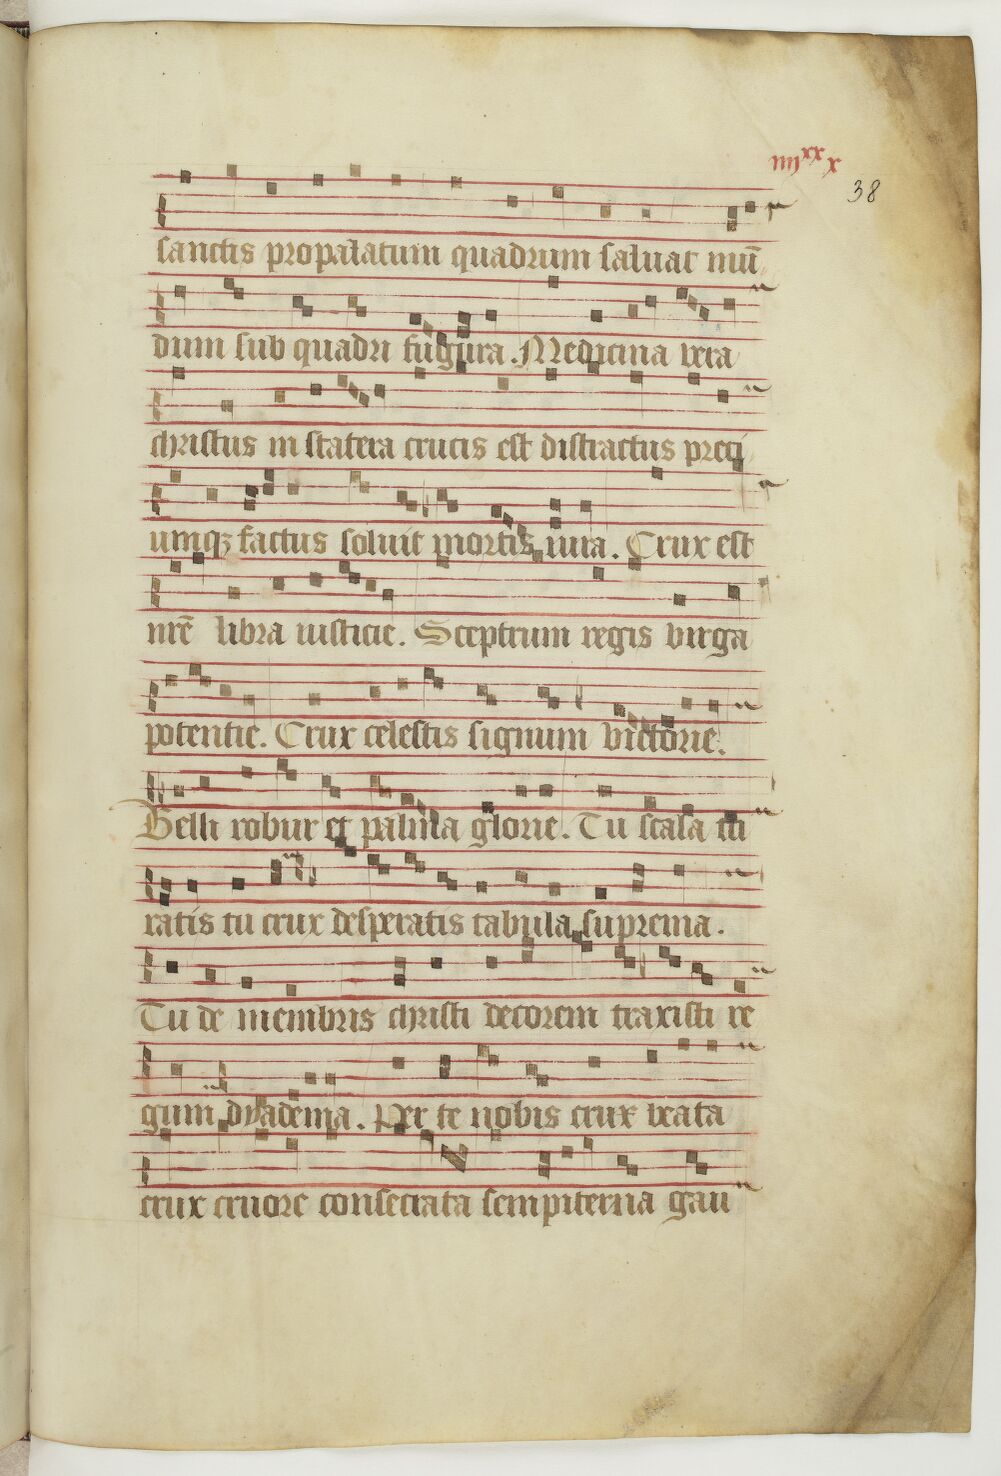 iiij xx x
38
sanctis propalatum quadrum saluat mū
dum sub quadri fugura. Medicina vera
christus in statera crucis est distractus preci
umqꝫ factus soluit mortis iura. Crux est
nrē libra iusticie. Sceptrum regis virga
potentie. Crux celestis signum victorie.
Belli robur et palma glorie. Tu scala tu
ratis tu crux desperatis tabula suprema.
Tu de membris christi decorem traxisti re
gum dyadema. Per te nobis crux beata
crux cruore consecrata sempiterna gau